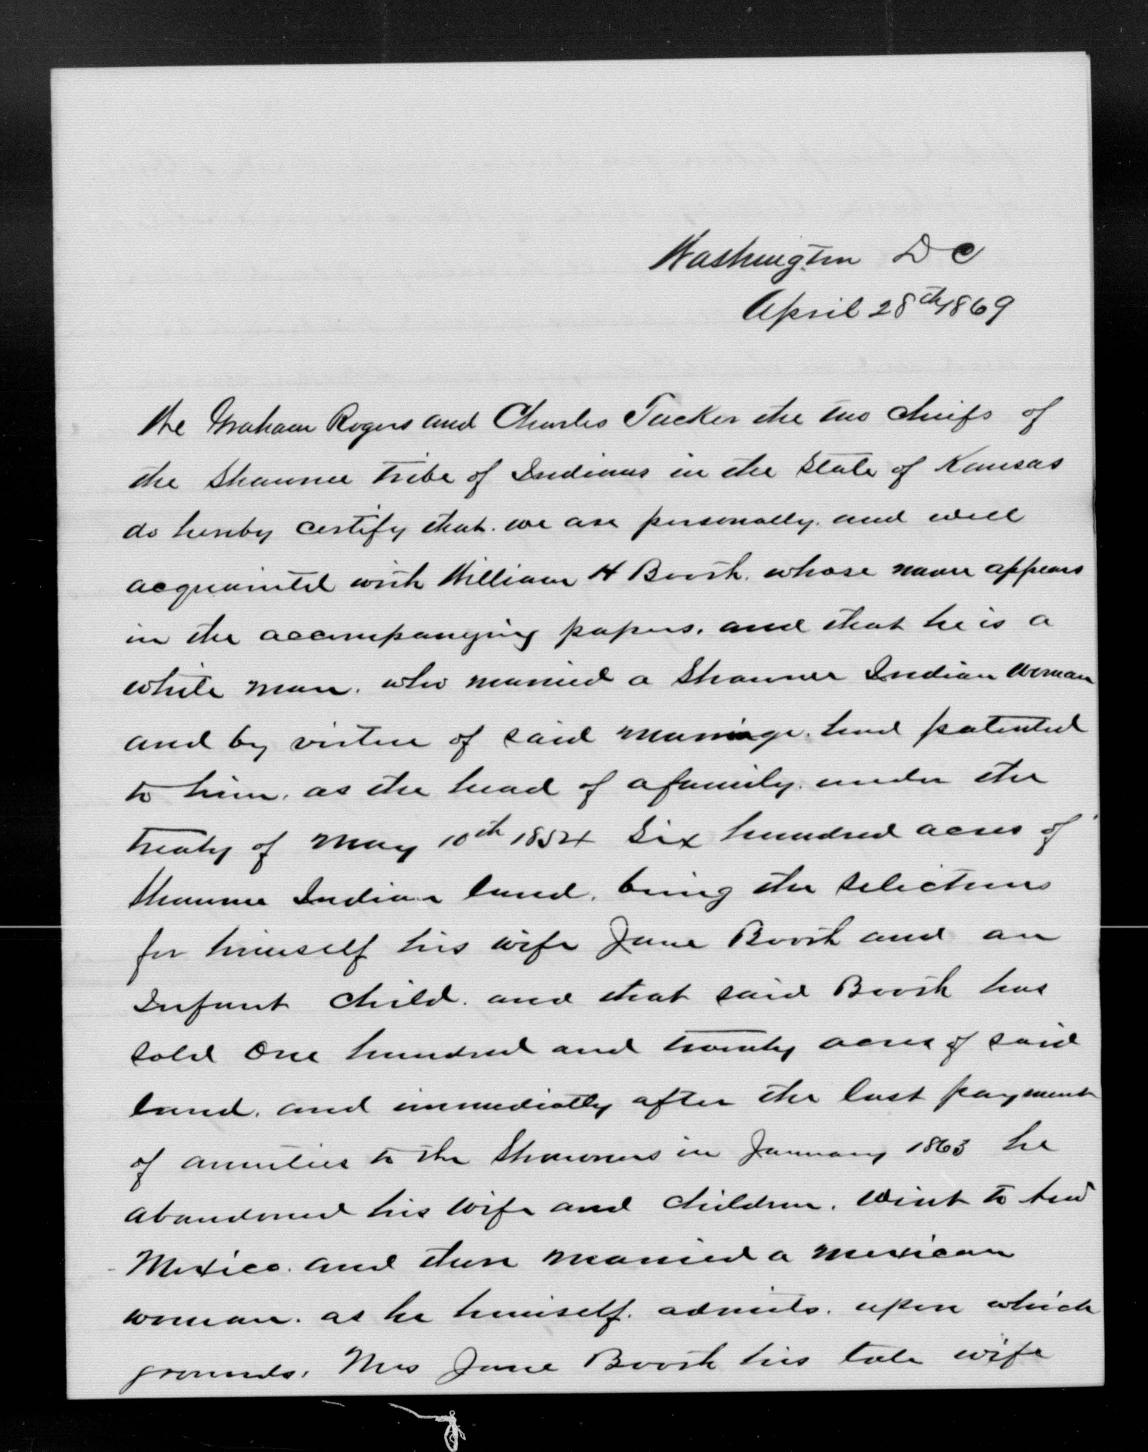 Washington D C
April 28th 1869
We Graham Rogers and Charles Tucker the two chiefs of
the Shawnee tribe of Indians in the State of Kansas
do hereby certify that. we are personally. and well
acquainted with William H Booth. whose name appears
in the accompanying papers. and that he is a
white man. who married a Shawnee Indian woman
and by virtue of said marriage. had patented
to him. as the head of a family. under the
treaty of May 10th 1854 Six hundred acres of
Shawnee Indian land. being the selections
for himself his wife Jane Booth and an
Infant child. and that said Booth has
sold One hundred and twenty acres of said
land. and immediatly after the last payment
of anuities to the Shawnees in January 1863 he
abandoned his wife and children. went to New
Mexico. and there married a mexican
woman. as he himself. admits. upon which
grounds. Mrs Jane Booth his late wife